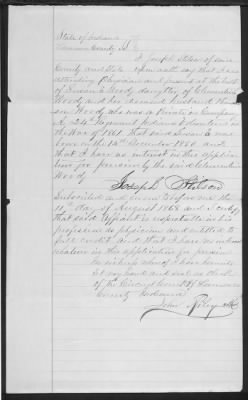 State of Indiana
County SS
I Joseph Stilson of said
County and State upon oath say that I was
attending Physician and present at the birth
of Susan E Woody daughter of Clementine
Woody and her deceased husband
Woody who was a Private in Company
24th Regiment Indiana in
the War of 1861 that said Susan E was
born on the 14th December 1860 and
that I have no interest in the applica
tion for pension by the said Clementine
Woody
Joseph Stilson
Subscribed and sworn to before me this
11th day of August 1868 and I certify
that said affiant is respectable in his
profession as physician and entitled to
full credit and that I have no interest
in this application for pension
In witness whereof I have hereunto
set my hand and seal as Clerk
of the Circuit Court of
County Indiana
John